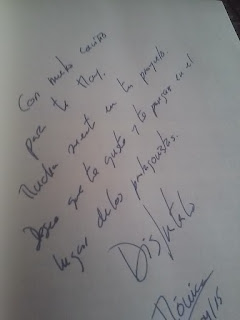 Con mucho cariño
para ti May.
Mucha suert en tu proyecto.
Deseo que te guste y te pongas en el
lugar de los protagonistas.
Disfrútalo
Mónica
/15